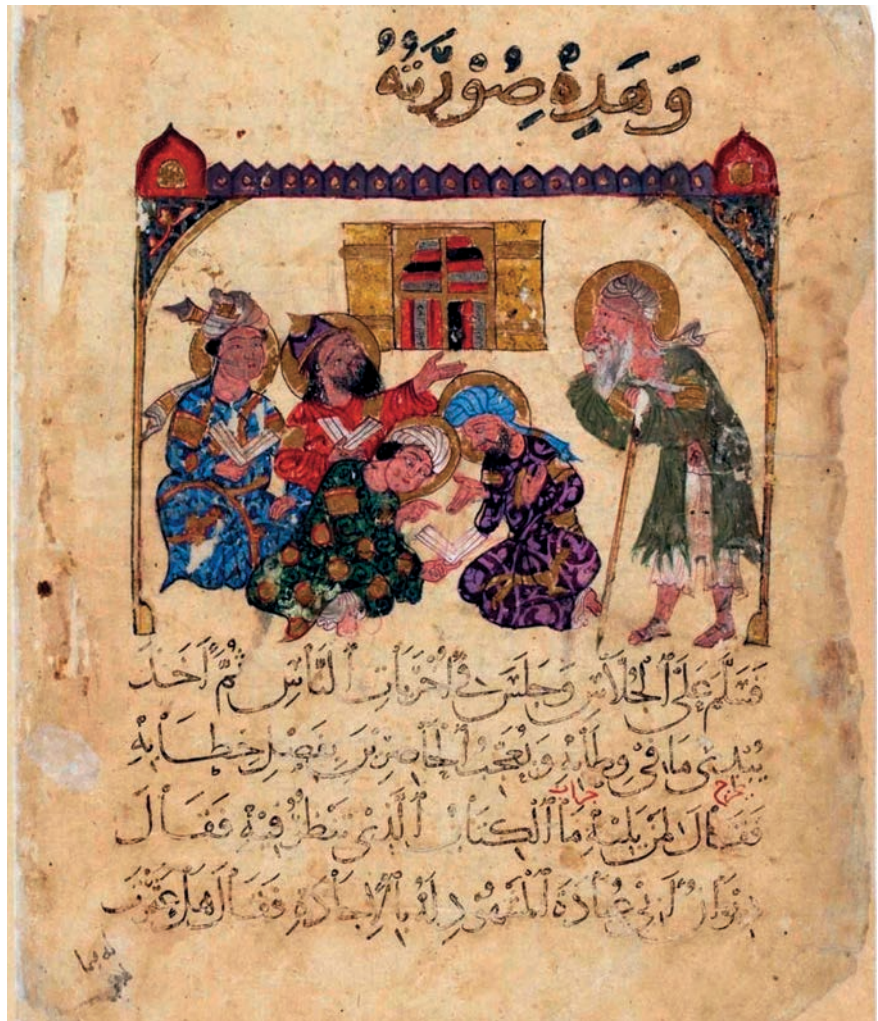 وَهَذِهِ صُوْرَتُهُ
فَسَلَّمَ عَلَى الْجُلَّاسِ وَجَلَسَ فِي أُخْرَيَاتِ النَّاسِ ثُمَّ أَخَذَ
يُبْدِي مَا فِي وِطَابِهِ وَيُعْجِبُ الْحَاضِرِينَ بِفَصْلِ خِطَابِهِ
فَقَالَ لِمَنْ يَلِيْهِ مَا الْكِتَابُ الَّذِي تَنْظُرُ فِيْهِ فَقَالَ
دِيْوَانُ أَبِي عُبَادَةَ الْمَشْهُودِ لَهُ بِالْإِجَادَةِ فَقَالَ هَلْ عَثَرْتَ
له فيما